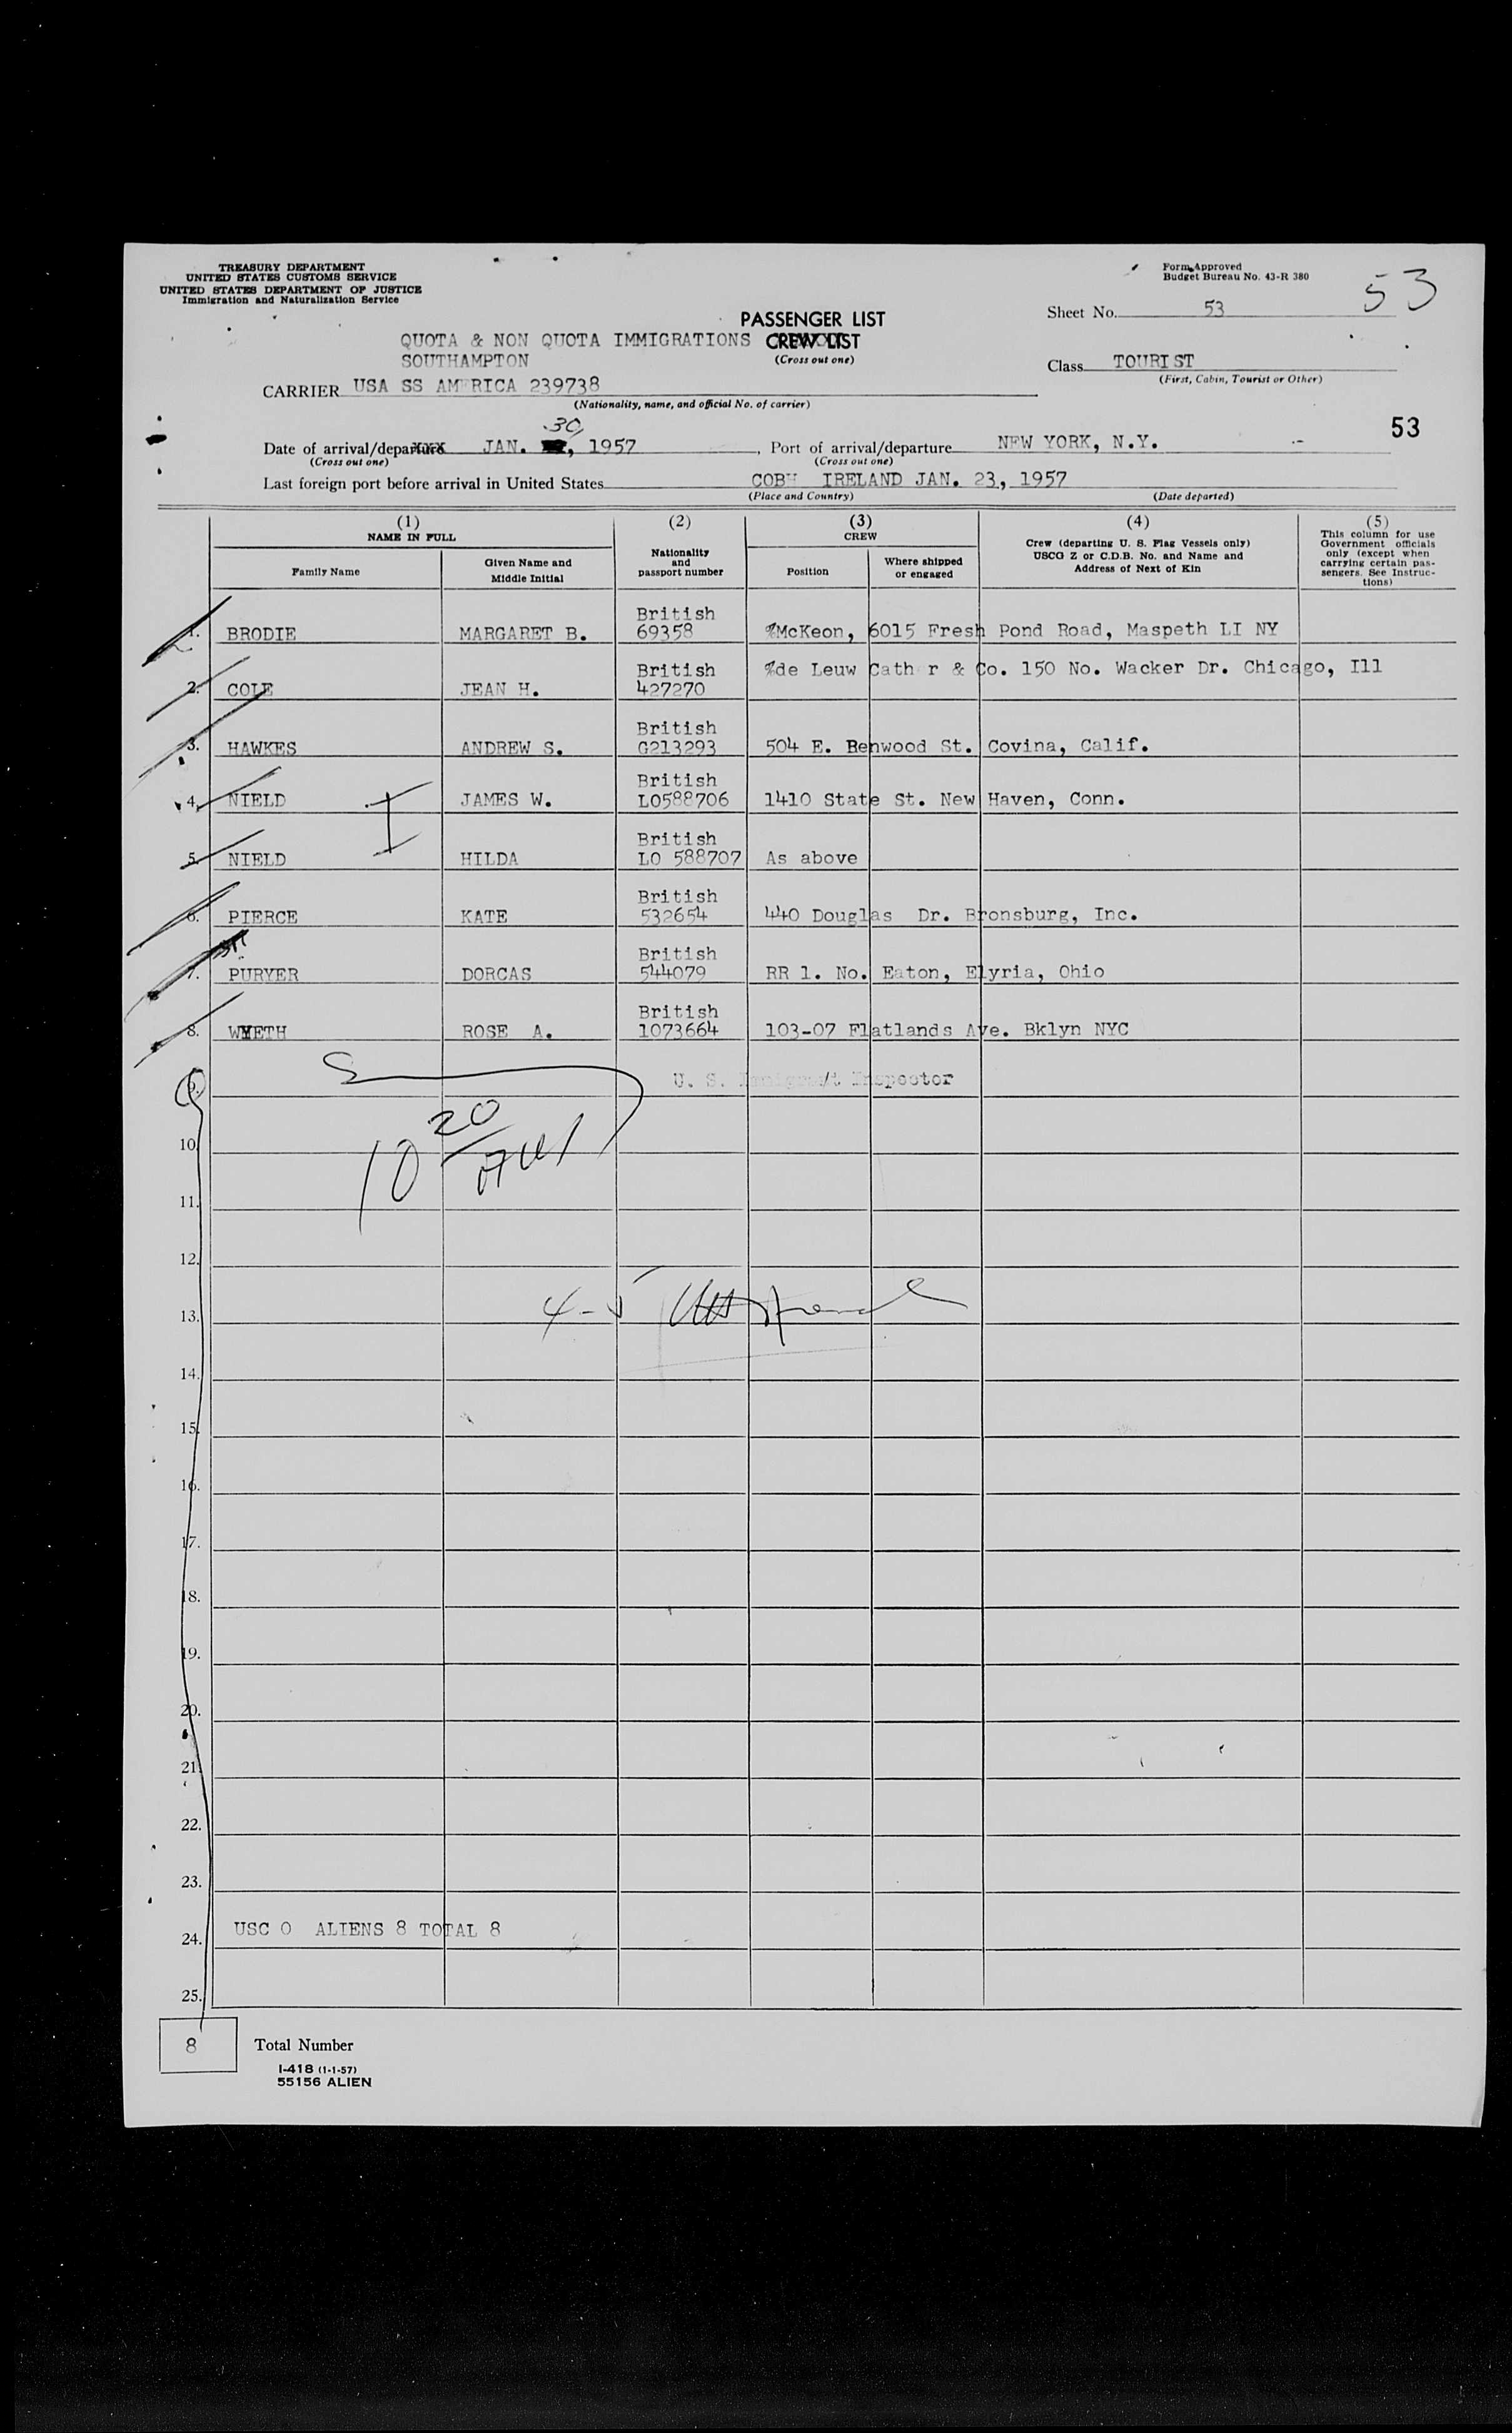 TREASURY DEPARTMENT
UNITED STATES CUSTOMS SERVICE
UNITED STATES DEPARTMENT OF JUSTICE
Immigration and Naturalization Service
Form Approved
Budget Bureau No. 43-R 380
53
Sheet No. 53
PASSENGER LIST
QUOTA & NON QUOTA IMMIGRATIONS CREW LIST
(Cross out one)
SOUTHAMPTON
Class TOURIST
(First, Cabin, Tourist or Other)
CARRIER USA SS AMERICA 239738
(Nationality, name, and official No. of carrier)
53
30
Date of arrival/departure JAN. , 1957, Port of arrival/departure NEW YORK, N.Y.
(Cross out one) (Cross out one)
Last foreign port before arrival in United States COBH IRELAND JAN. 23, 1957
(Place and Country) (Date departed)
(1) (2) (3) (4) (5)
NAME IN FULL
Family Name
Given Name and Middle Initial
Nationality and passport number
CREW
Position
Where shipped or engaged
Crew (departing U. S. Flag Vessels only)
USCG Z or C.D.B. No. and Name and
Address of Next of Kin
This column for use
Government officials
only (except when
carrying certain pas-
sengers. See Instruc-
tions)
British
1. BRODIE MARGARET B. 69358 %McKeon, 6015 Fresh Pond Road, Maspeth LI NY
British %de Leuw Cath r & Co. 150 No. Wacker Dr. Chicago, Ill
2. COLE JEAN H. 427270
British
3. HAWKES ANDREW S. G213293 504 E. Benwood St. Covina, Calif.
British
4. NIELD JAMES W. L0588706 1410 State St. New Haven, Conn.
British
5. NIELD HILDA LO 588707 As above
British
6. PIERCE KATE 532654 440 Douglas Dr. Bronsburg, Inc.
British
7. PURYER DORCAS 544079 RR 1. No. Eaton, Elyria, Ohio
British
8. WYETH ROSE A. 1073664 103-07 Flatlands Ave. Bklyn NYC
9. U. S. Immigrant Inspector
10 20
10.
11.
12.
4-5
13.
14.
15.
16.
17.
18.
19.
20.
21.
22.
23.
24. USC 0 ALIENS 8 TOTAL 8
25.
8 Total Number
I-418 (1-1-57)
55156 ALIEN